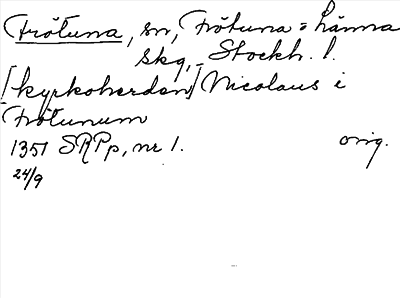 Frötuna, sn, Frötuna = Länna
skg, Stockh. l.
[kyrkoherden] Nicolaus i
Frötunum
1351 SRPp, nr 1. orig.
24/9